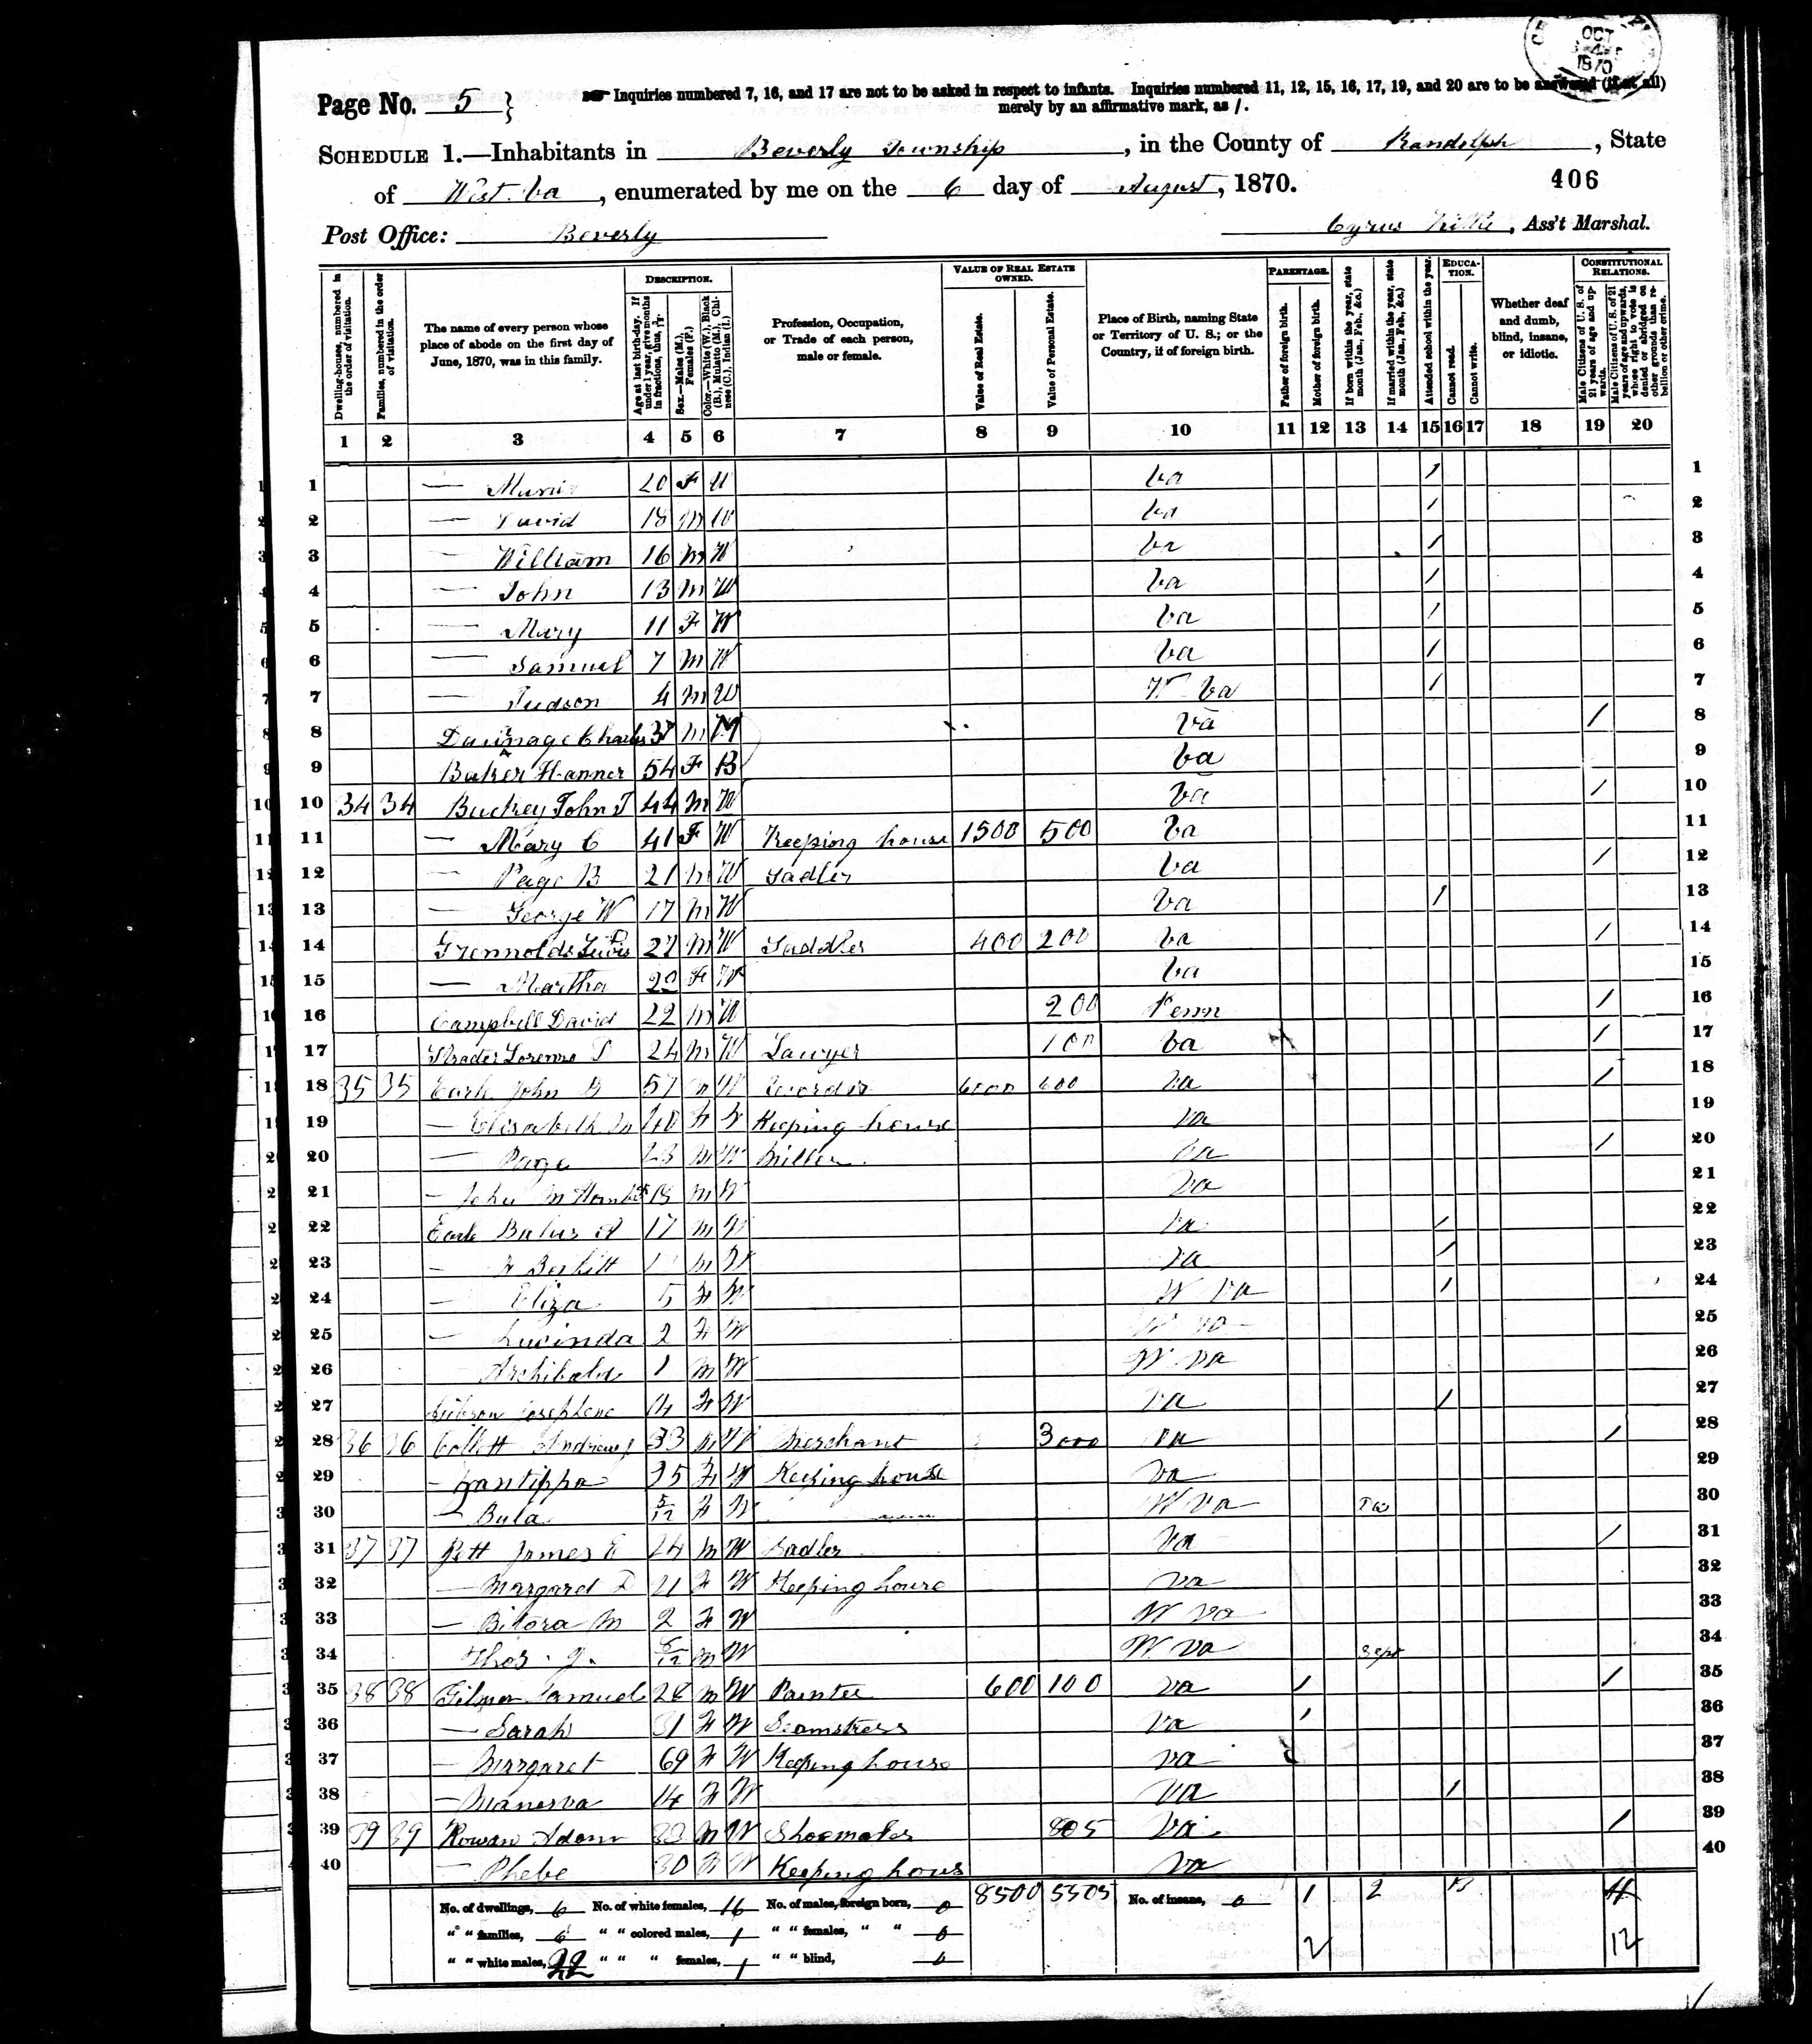 OCT
1870
Page No. 5 } Inquiries numbered 7, 16, and 17 are not to be asked in respect to infants. Inquiries numbered 11, 12, 15, 16, 17, 19, and 20 are to be answered (if at all)
merely by an affirmative mark, as /.
SCHEDULE 1.—Inhabitants in Beverly Township, in the County of Randolph, State
of West. Va, enumerated by me on the 6 day of August, 1870. 406
Post Office: Beverly Cyrus , Ass't Marshal.
Dwelling-houses, numbered in the order of visitation.
Families, numbered in the order of visitation.
The name of every person whose place of abode on the first day of June, 1870, was in this family.
DESCRIPTION.
Age at last birth-day. If under 1 year, give months in fractions, thus, 3/12.
Sex.—Males (M.), Females (F.)
Color.—White (W.), Black (B.), Mulatto (M.), Chinese (C.), Indian (I.)
Profession, Occupation, or Trade of each person, male or female.
VALUE OF REAL ESTATE OWNED.
Value of Real Estate.
Value of Personal Estate.
Place of Birth, naming State or Territory of U. S.; or the Country, if of foreign birth.
PARENTAGE.
Father of foreign birth.
Mother of foreign birth.
If born within the year, state month (Jan., Feb., &c.)
If married within the year, state month (Jan., Feb., &c.)
Attended school within the year.
EDUCATION.
Cannot read.
Cannot write.
Whether deaf and dumb, blind, insane, or idiotic.
CONSTITUTIONAL RELATIONS.
Male Citizens of U. S. of 21 years of age and upwards.
Male Citizens of U. S. of 21 years of age and upwards, whose right to vote is denied or abridged on other grounds than rebellion or other crime.
1 2 3 4 5 6 7 8 9 10 11 12 13 14 15 16 17 18 19 20
1 — 20 F W Va / 1
2 — David 18 M W Va / 2
3 — William 16 M W Va / 3
4 — John 13 M W Va / 4
5 — Mary 11 F W Va / 5
6 — Samuel 7 M W Va / 6
7 — Judson 4 M W W Va / 7
8 Charles 37 M M Va / 8
9 Baker Hanner 54 F B Va 9
10 34 34 Buckey John J 44 M W Va / 10
11 — Mary C 41 F W Keeping house 1500 500 Va 11
12 — Page B 21 M W Sadler Va / 12
13 — George W 17 M W Va / 13
14 27 M W Saddler 400 200 Va / 14
15 — Martha 20 F W Va 15
16 Campbell David 22 M W 200 Penn / 16
17 Strader Lorenzo D 24 M W Lawyer 100 Va / 17
18 35 35 Earle John 57 M W 6000 600 Va / 18
19 — Elisabeth 40 F W Keeping house Va 19
20 — Page 23 M W Miller Va / 20
21 — John M 18 M W Va 21
22 Earle 17 M W Va / 22
23 — M W Va / 23
24 — Eliza 5 F W W Va / 24
25 — Lucinda 2 F W W Va 25
26 — Archibald 1 M W W Va 26
27 Gibson Josephene 14 F W Va / 27
28 36 36 Collett Andrew J 33 M W Merchant 3000 Va / 28
29 — Zantippa 35 F W Keeping house Va 29
30 — Bula 5/12 F W W Va 30
31 37 37 James 24 M W Sadler Va / 31
32 — Margaret 21 F W Keeping house Va 32
33 — M 2 F W W Va 33
34 Thos. M W W Va Sept 34
35 38 38 Gilmer Samuel 28 M W Painter 600 100 Va / / 35
36 — Sarah 31 F W Seamstress Va / 36
37 — Margaret 69 F W Keeping house Va 37
38 — Manerva 14 F W Va / 38
39 39 39 Rowan Adam 33 M W Shoemaker 805 Va / 39
40 — Phebe 30 F W Keeping hous Va 40
No. of dwellings, 6 No. of white females, 16 No. of males, foreign born, 0 8500 5505 No. of insane, 0 1 2 11
" " families, 6 " " colored males, 1 " " females, " " 0
" " white males, 22 " " " females, 1 " " blind, 0 2 12